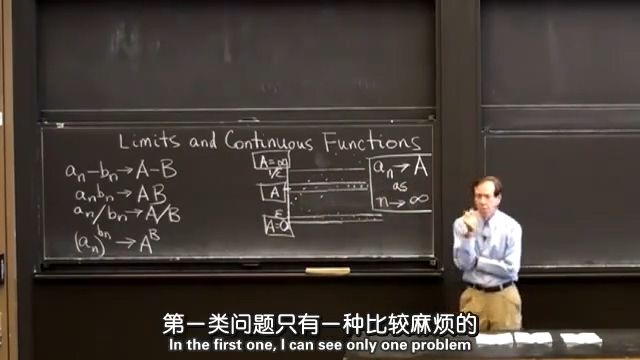 Limits and Continuous Functions
aₙ-bₙ→A-B
aₙbₙ→AB
aₙ/bₙ→A/B
(aₙ)^bₙ→A^B
A=∞
1/ε
A
ε
A=0
aₙ→A
as
n→∞
第一类问题只有一种比较麻烦的
In the first one, I can see only one problem